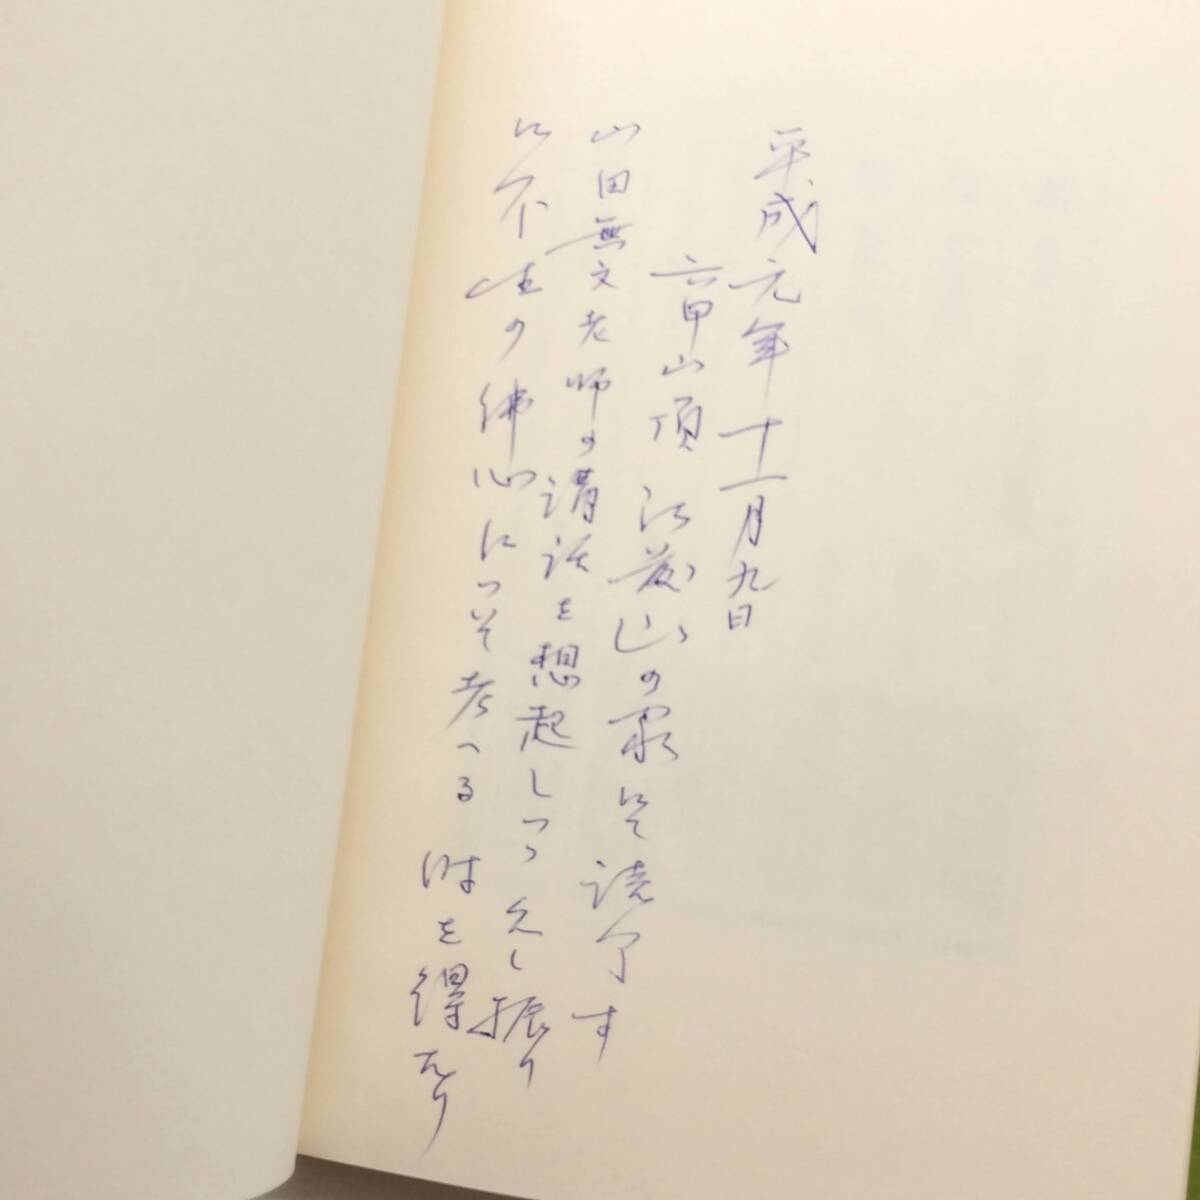 平成元年十一月九日
六甲山頂 江山の家にて読了す
山田無文老師の講話を想起しつつ久し振り
に不生の佛心について考へる時を得たり